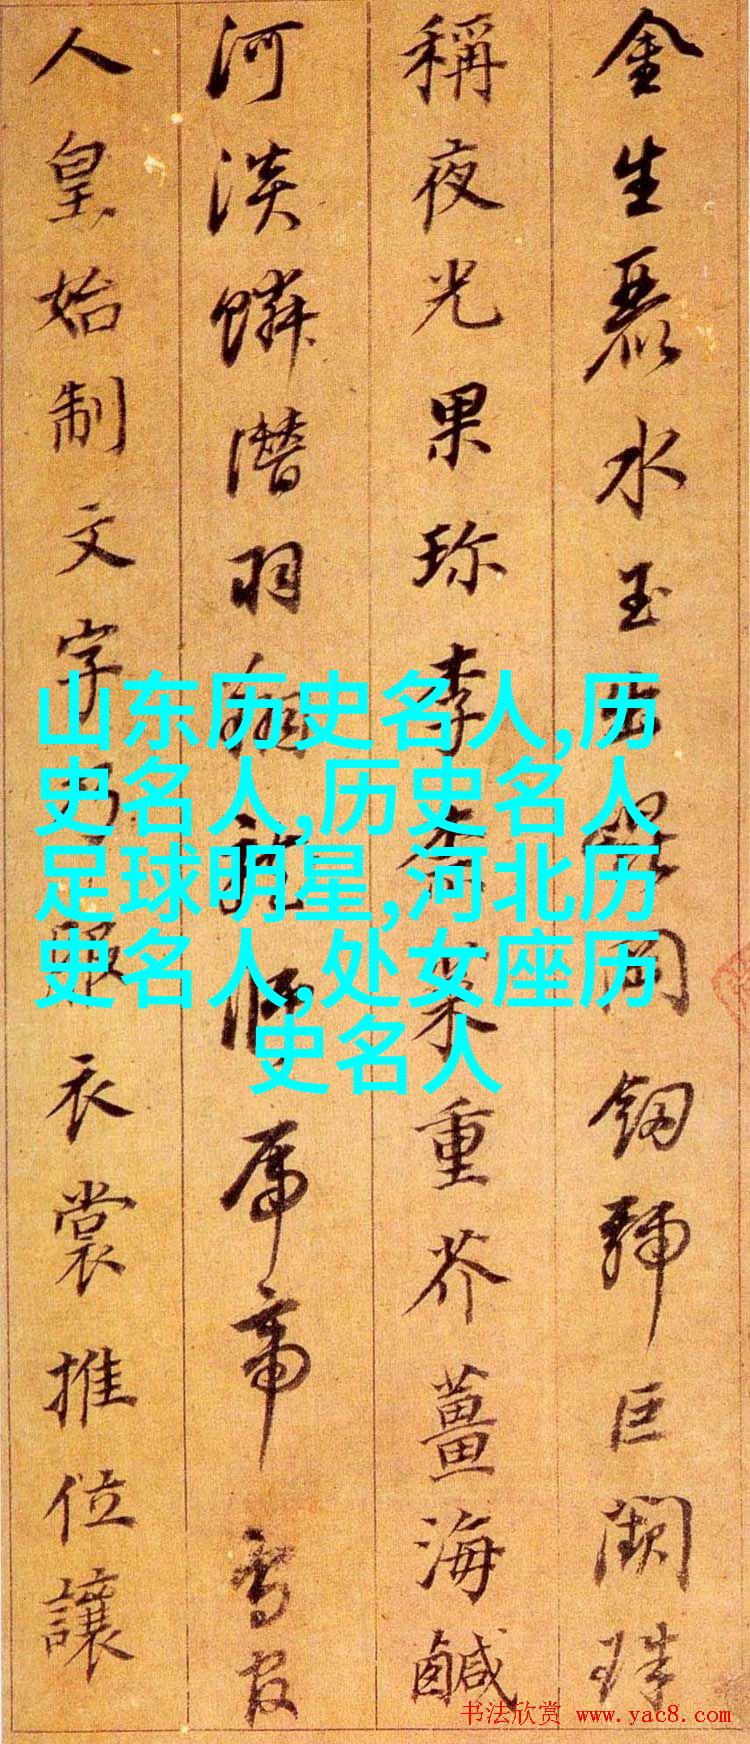 金生麗水玉出崑岡劔號巨闕珠
稱夜光果珍李柰菜重芥薑海鹹
河淡鱗潜羽翔龍師火帝鳥官
人皇始制文字乃服衣裳推位讓
山东历史名人,历
史名人,历史名人
足球明星,河北历
史名人,处女座历
史名人
书法欣赏 www.yac8.com